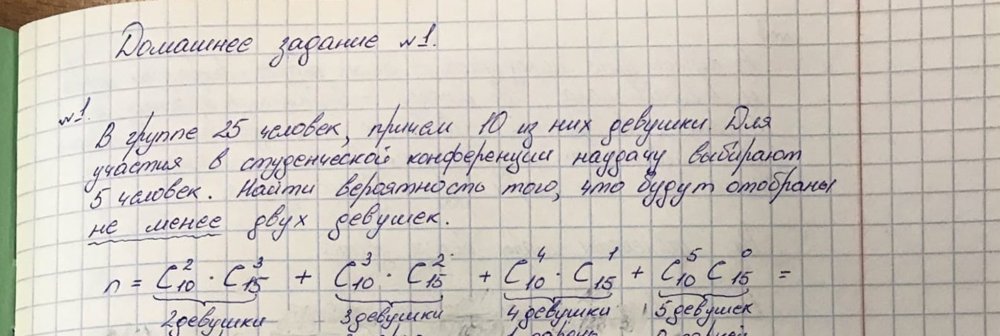 Домашнее задание №1.
№1.
В группе 25 человек, причем 10 из них девушки. Для
участия в студенческой конференции наудачу выбирают
5 человек. Найти вероятность того, что будут отобраны
не менее двух девушек.
n = C₁₀² · C₁₅³ + C₁₀³ · C₁₅² + C₁₀⁴ · C₁₅¹ + C₁₀⁵ C₁₅⁰ =
2девушки 3девушки 4девушки 5девушек